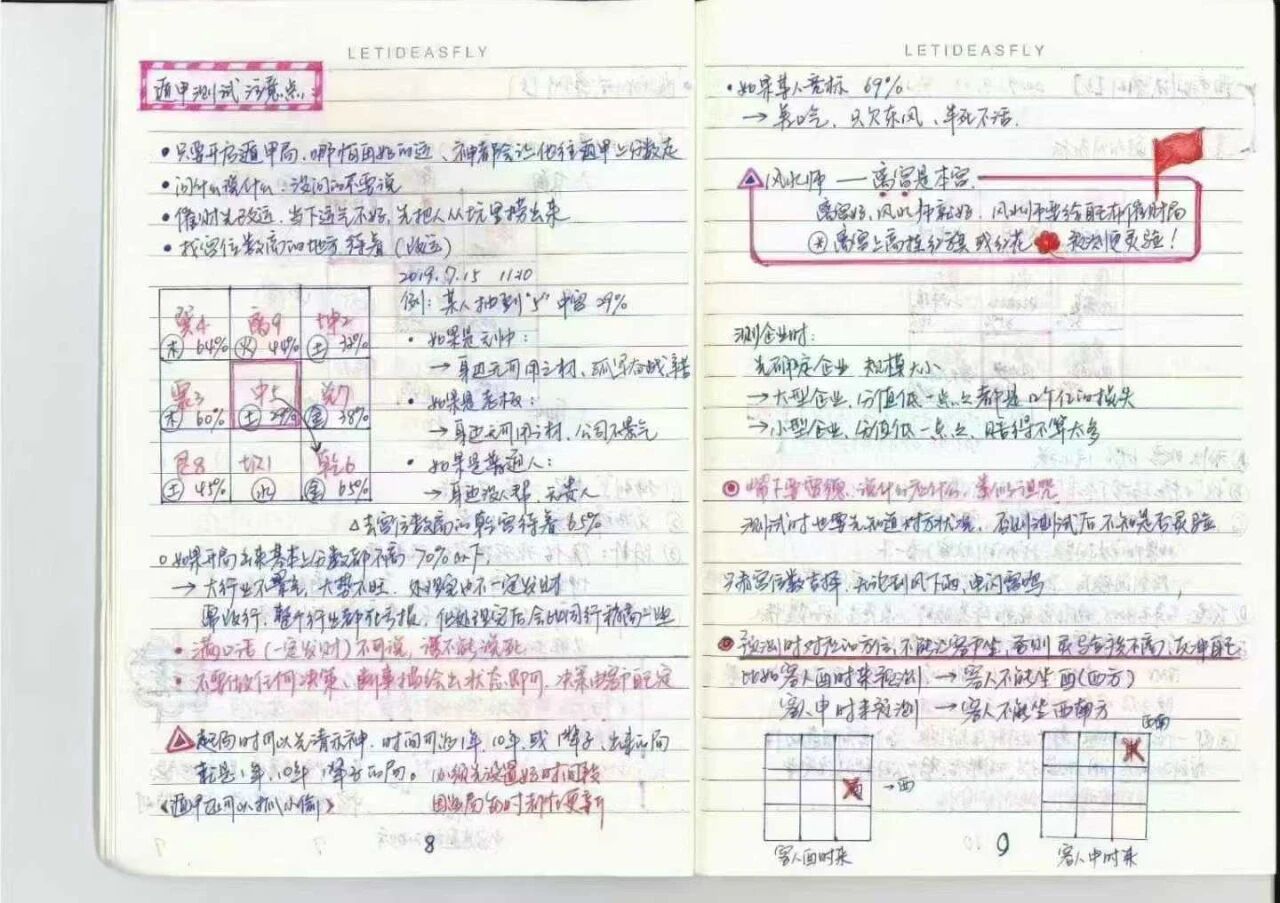 LETIDEASFLY
遁甲测试注意点
• 只要开启遁甲局,哪怕再好的运、神都会让他往遁甲上分数走
• 问什么 没问的不要说
• 催财先改运,当下运气不好,先把人从坑里捞出来
• 找宫位数高的地方待着(改运)
2019.7.15 11:10
例:某人抽到"5"中宫29%
巽4 离9 坤2
木 64% 火 44% 土
震3 中5 兑7
木 60% 土 29% 金 38%
艮8 坎1 乾6
土 45% 水 金 65%
• 如果是
→ 身边无可用之材,
• 如果是老板:
→ 身边无可用之材,公司不景气
• 如果是普通人:
→ 身边没人帮,无贵人
△ 去宫位数高的乾宫待着65%
○ 如果开局出来基本上分数都不高 70%以下,
→ 大行业不景气,大势不旺。 也不一定发财
整个行业都 但处理完后会比同行稍高一些
• 满口话(一定发财)不可说,谋不能说死
• 不要做任何决策、断事描绘出状态即可,决策由客户自定
起局时可以先请示神,时间可论1年,10年,或1辈子,出来的局
就是1年,10年 1辈子的局。 必须先设置好时间段
《遁甲还可以抓小偷》 因为局每时都在更新
8
LETIDEASFLY
• 如果某人竞标 69%
→ 只欠东风,
风水师 — 离宫是本宫
离宫好,风水师就好, 风水师要给自己布催财局
离宫上高挂红旗或红花 预测更灵验!
测企业时:
先确定企业规模大小
→ 大型企业,分值低一点点都是几个亿的损失
→ 小型企业,分值低一点点,
测试时也要先知道对方状况, 否则测试后不知是否灵验
只看宫位数吉择,无论刮风下雨,电闪雷鸣
预测时对应的方位,不能让客户坐,否则
比如客人酉时来预测 → 客人不能坐酉(西方)
客人申时来预测 → 客人不能坐西南方
酉 → 西
西南
客人酉时来
客人申时来
9